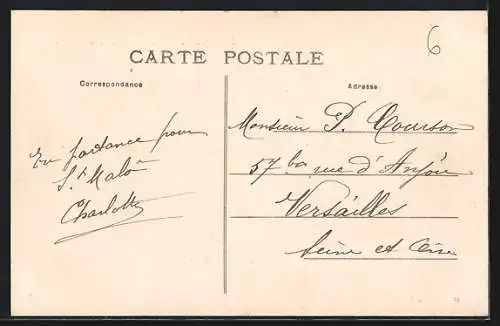 6
CARTE POSTALE
Correspondance
Adresse
En partance pour
St Malô
Charlotte
Monsieur P. Courson
57 bis rue d'Anjou
Versailles
Seine et Oise